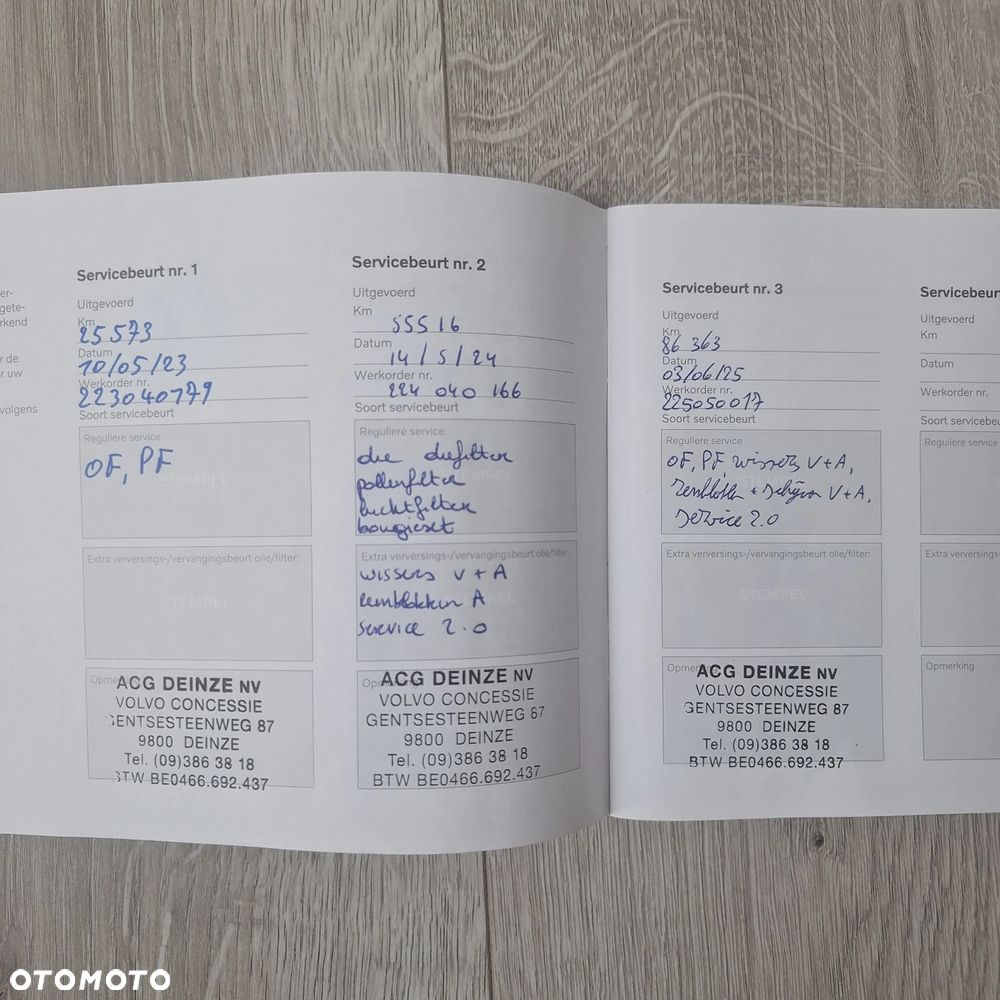 er-
gete-
rkend
r de
or uw
volgens
Servicebeurt nr. 1
Uitgevoerd
Km
25573
Datum
10/05/23
Werkorder nr.
223040779
Soort servicebeurt
Reguliere service
OF, PF
STEMPEL
Extra verversings-/vervangingsbeurt olie/filter:
STEMPEL
Opmerking
ACG DEINZE NV
VOLVO CONCESSIE
GENTSESTEENWEG 87
9800 DEINZE
Tel. (09)386 38 18
BTW BE0466.692.437
Servicebeurt nr. 2
Uitgevoerd
Km
55516
Datum
14/5/24
Werkorder nr.
224 040 166
Soort servicebeurt
Reguliere service
olie oliefilter
pollenfilter
luchtfilter
bougieset
Extra verversings-/vervangingsbeurt olie/filter:
wissers V + A
remblokken A
service 2.0
ACG DEINZE NV
VOLVO CONCESSIE
GENTSESTEENWEG 87
9800 DEINZE
Tel. (09)386 38 18
BTW BE0466.692.437
Servicebeurt nr. 3
Uitgevoerd
Km
86 363
Datum
03/06/25
Werkorder nr.
225050017
Soort servicebeurt
Reguliere service
OF, PF, wissers V+A,
remblokken + schijven V+A,
service 2.0
Extra verversings-/vervangingsbeurt olie/filter:
STEMPEL
Opmerking
ACG DEINZE NV
VOLVO CONCESSIE
GENTSESTEENWEG 87
9800 DEINZE
Tel. (09)386 38 18
BTW BE0466.692.437
Servicebeur
Uitgevoerd
Km
Datum
Werkorder nr.
Soort servicebeu
Reguliere service
Extra verversings-
Opmerking
OTOMOTO